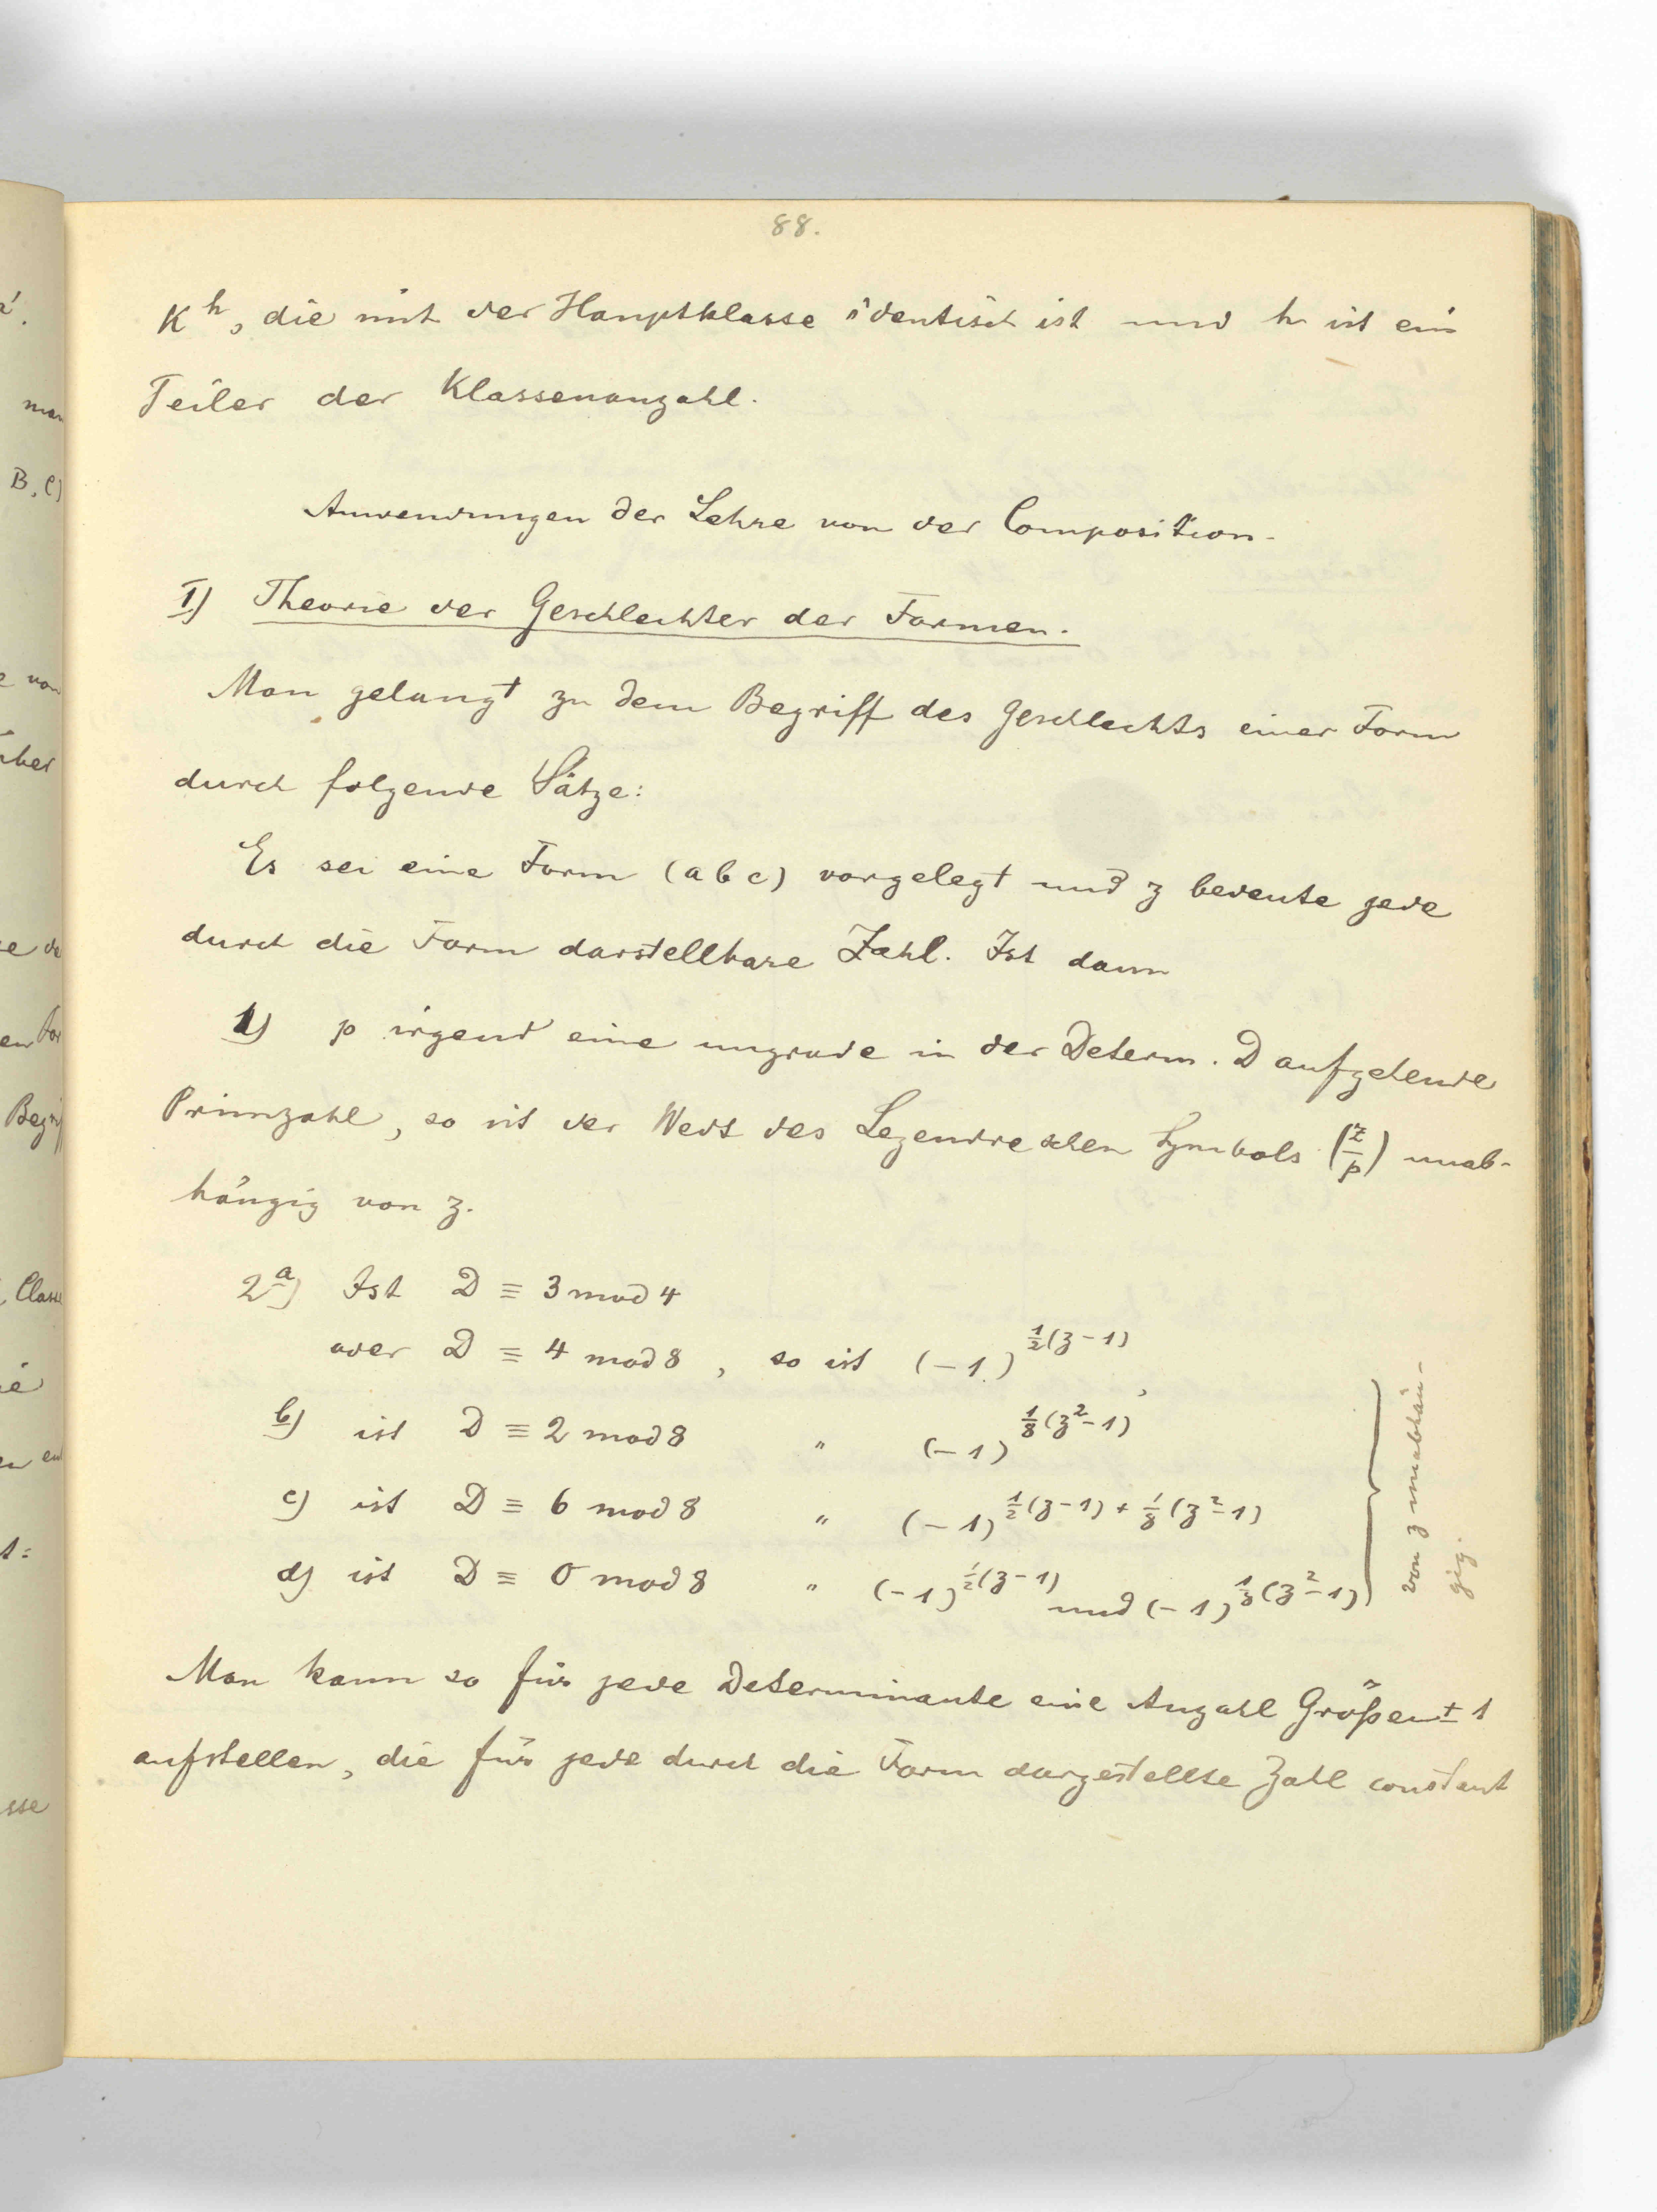 88.
K^h, die mit der Hauptklasse identisch ist und h ist ein
Teiler der Klassenanzahl.
Anwendungen der Lehre von der Composition.
I) Theorie der Geschlechter der Formen.
Man gelangt zu dem Begriff des Geschlechts einer Form
durch folgende Sätze:
Es sei eine Form (a b c) vorgelegt und z bedeute jede
durch die Form darstellbare Zahl. Ist dann
1) p irgend eine ungrade in der Determ. D aufgehende
Primzahl, so ist der Wert des Legendreschen Symbols (z/p) unab-
hängig von z.
2a) Ist D ≡ 3 mod 4
oder D ≡ 4 mod 8, so ist (-1)^{1/2(z-1)},
b) ist D ≡ 2 mod 8 " (-1)^{1/8(z²-1)}
c) ist D ≡ 6 mod 8 " (-1)^{1/2(z-1) + 1/8(z²-1)}
d) ist D ≡ 0 mod 8 " (-1)^{1/2(z-1)} und (-1)^{1/8(z²-1)}
von z unabhän-
gig.
Man kann so für jede Determinante eine Anzahl Größen ± 1
aufstellen, die für jede durch die Form dargestellte Zahl constant
man
B, C)
von
Begriff
Classe